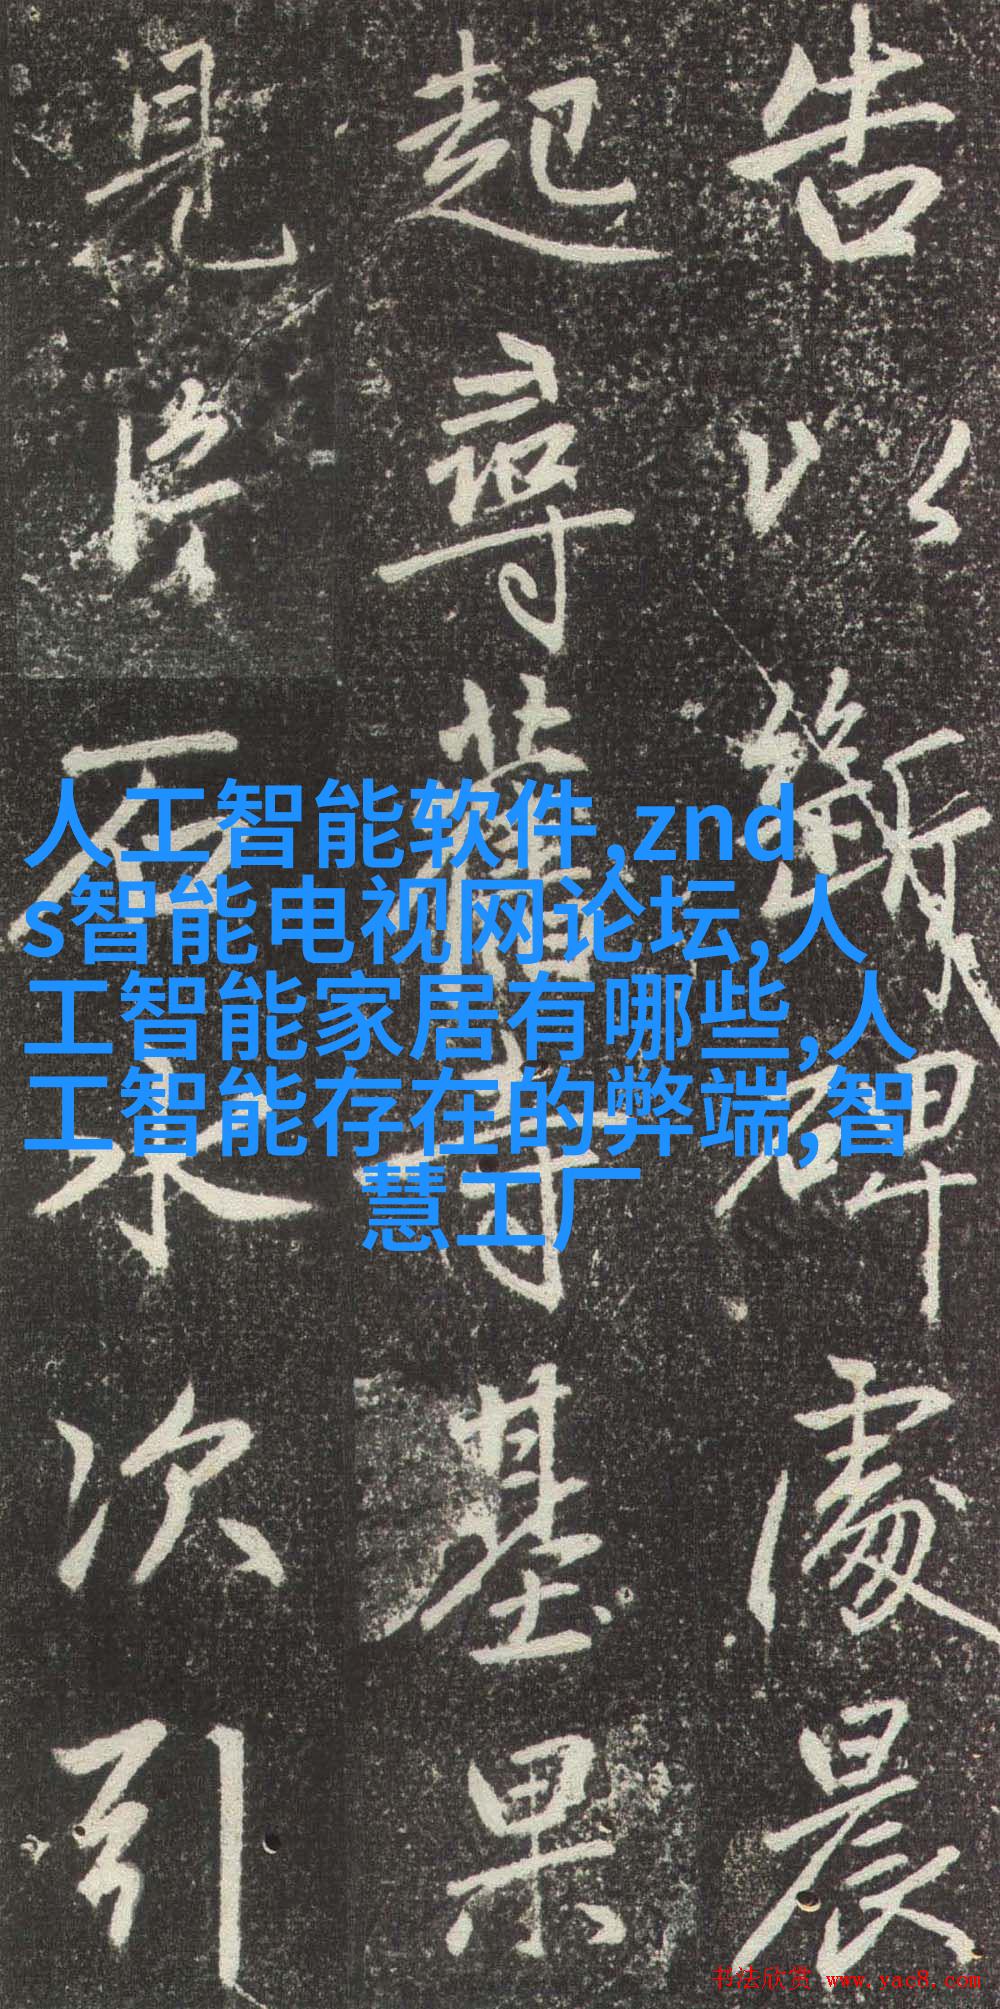 告以斷碑處晨
起尋舊寺基果
見次引
人工智能软件,znd
s智能电视网论坛,人
工智能家居有哪些,人
工智能存在的弊端,智
慧工厂
书法欣赏 www.yac8.com